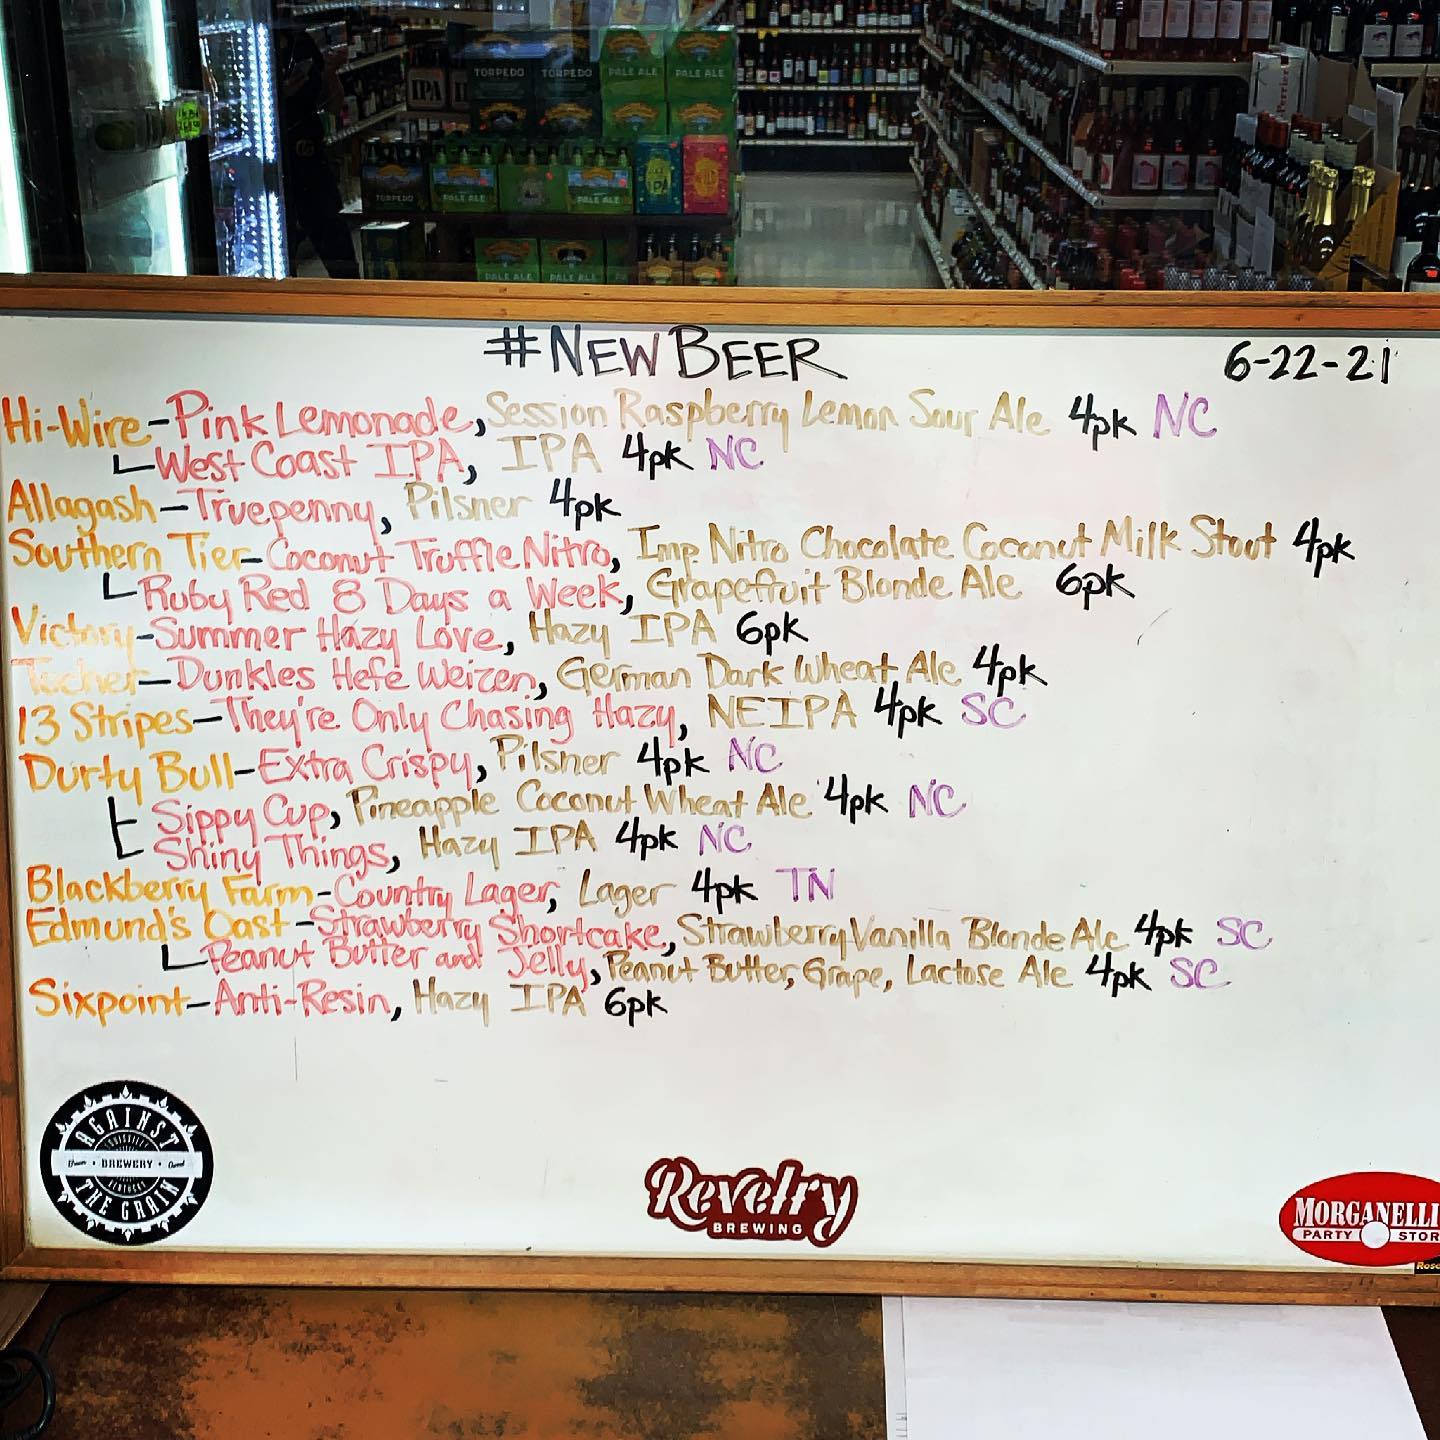 TORPEDO TORPEDO PALE ALE PALE ALE
IPA
TORPEDO PALE ALE PALE ALE IPA
PALE ALE
#NEW BEER 6-22-21
Hi-Wire-Pink Lemonade, Session Raspberry Lemon Sour Ale 4pk NC
West Coast IPA, IPA 4pk NC
Allagash-Truepenny, Pilsner 4pk
Southern Tier-Coconut Truffle Nitro, Imp. Nitro Chocolate Coconut Milk Stout 4pk
Ruby Red 8 Days a Week, Grapefruit Blonde Ale 6pk
Victory-Summer Hazy Love, Hazy IPA 6pk
Tucher-Dunkles Hefe Weizen, German Dark Wheat Ale 4pk
13 Stripes-They're Only Chasing Hazy, NEIPA 4pk SC
Durty Bull-Extra Crispy, Pilsner 4pk NC
Sippy Cup, Pineapple Coconut Wheat Ale 4pk NC
Shiny Things, Hazy IPA 4pk NC
Blackberry Farm-Country Lager, Lager 4pk TN
Edmund's Oast-Strawberry Shortcake, Strawberry Vanilla Blonde Ale 4pk SC
Peanut Butter and Jelly, Peanut Butter, Grape, Lactose Ale 4pk SC
Sixpoint-Anti-Resin, Hazy IPA 6pk
AGAINST
LOUISVILLE
BREWERY
KENTUCKY
THE GRAIN
Revelry
BREWING
MORGANELLI
PARTY STOR